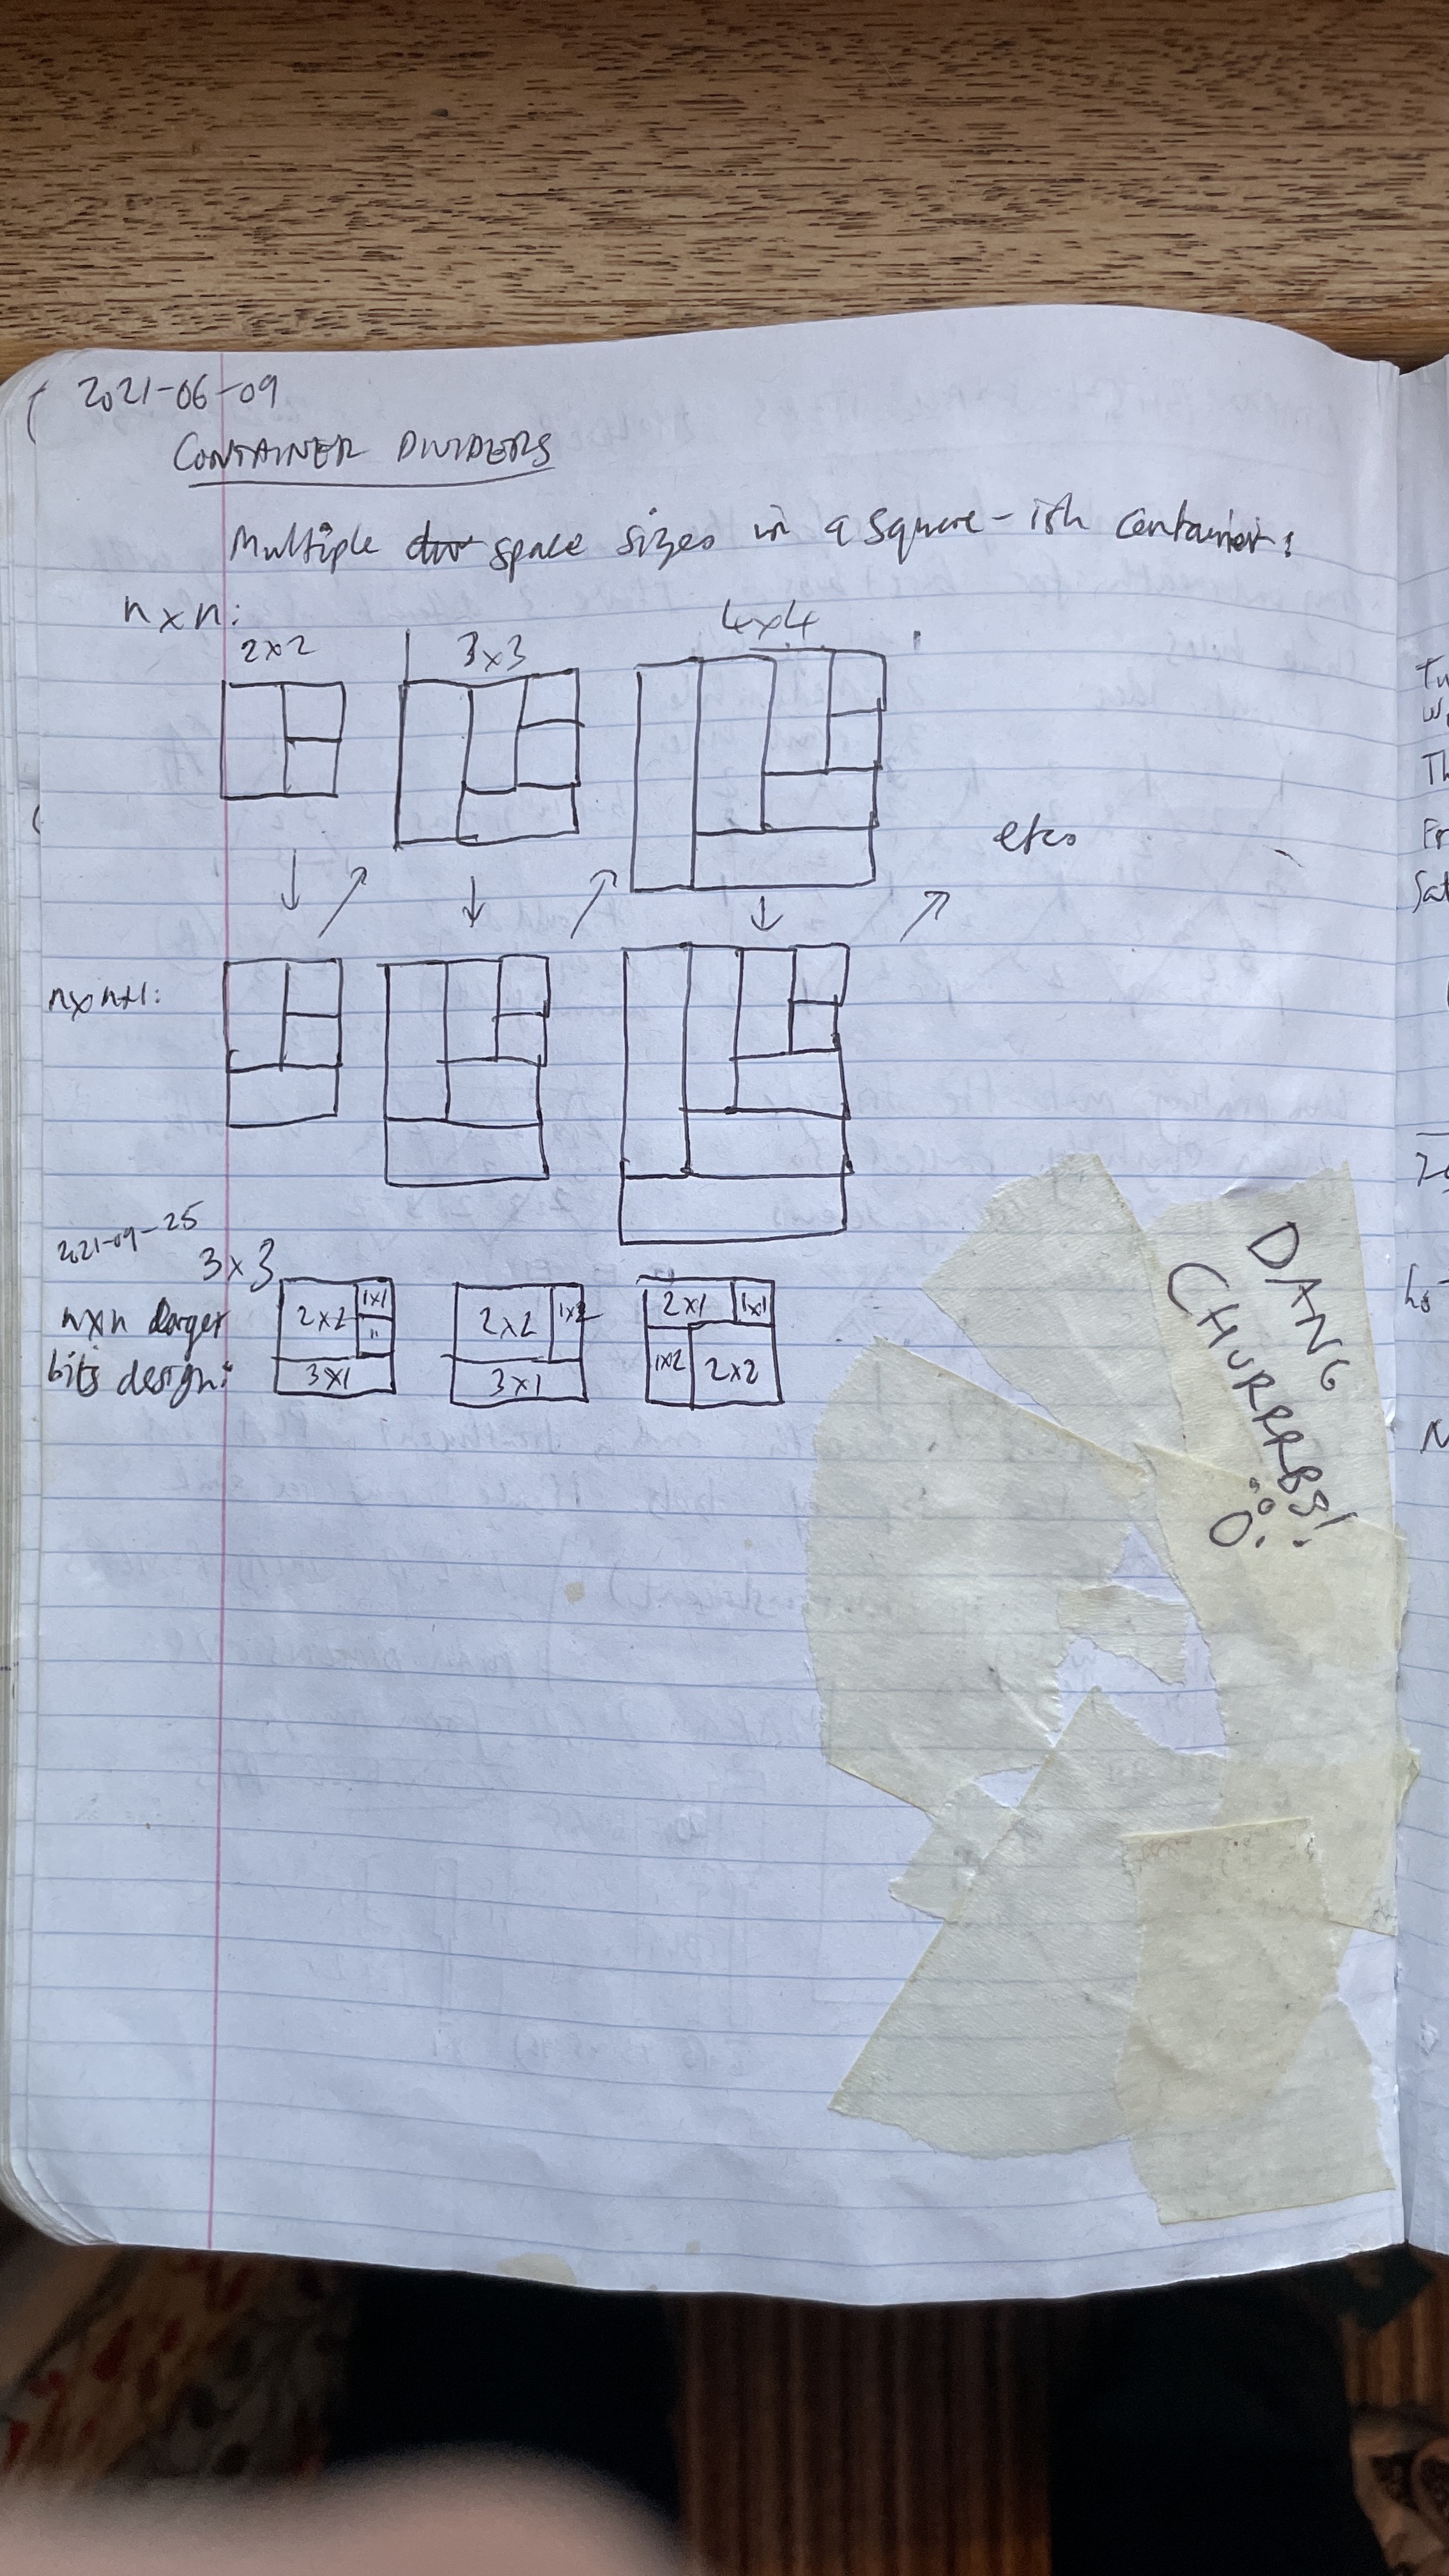 2021-06-09
CONTAINER DIVIDERS
Multiple space sizes in a square-ish container:
n×n:
2×2
3×3
4×4
etc.
n×n+1:
2021-09-25
3×3
n×n larger
bits design:
2×2 1×1
"
3×1
2×2 1×2
3×1
2×1 1×1
1×2 2×2
DANG
CHURRRBS!
Th
Sat